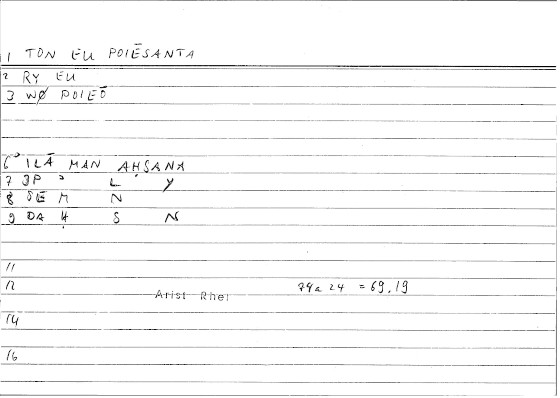 1 TON EU POIĒSANTA
2 RY EU
3 WØ POIEŌ
6 ILĀ MAN AḤSANA
7 3P L Y
8 SE M N
9 DA Ḥ S N
11
12 Arist Rhet 74a 24 = 69,19
14
16